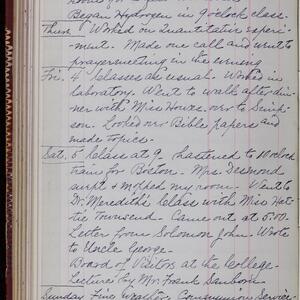 Began Hydrogen in 9 o'clock class.
Thurs. Worked on Quantitative experi-
ment. Made one call and went to
prayermeeting in the evening
Fri. 4 classes as usual. Worked in
laboratory. Went to walk after din-
ner with Miss Howes. over to Simp-
son. Looked over Bible papers and
made topics.
Sat. 5 Class at 9. hastened to 10 o'clock
train for Boston. Mrs. Desmond
swept & mopped my room. Went to
Dr. Meredith's class with Miss Hat-
tie Townsend. Came out at 5.50.
Letter from Solomon John. Wrote
to Uncle George.
Board of Visitors at the College.
Lecture by Mr. Frank Sanborn.
Sunday Fine weather. Communion Service